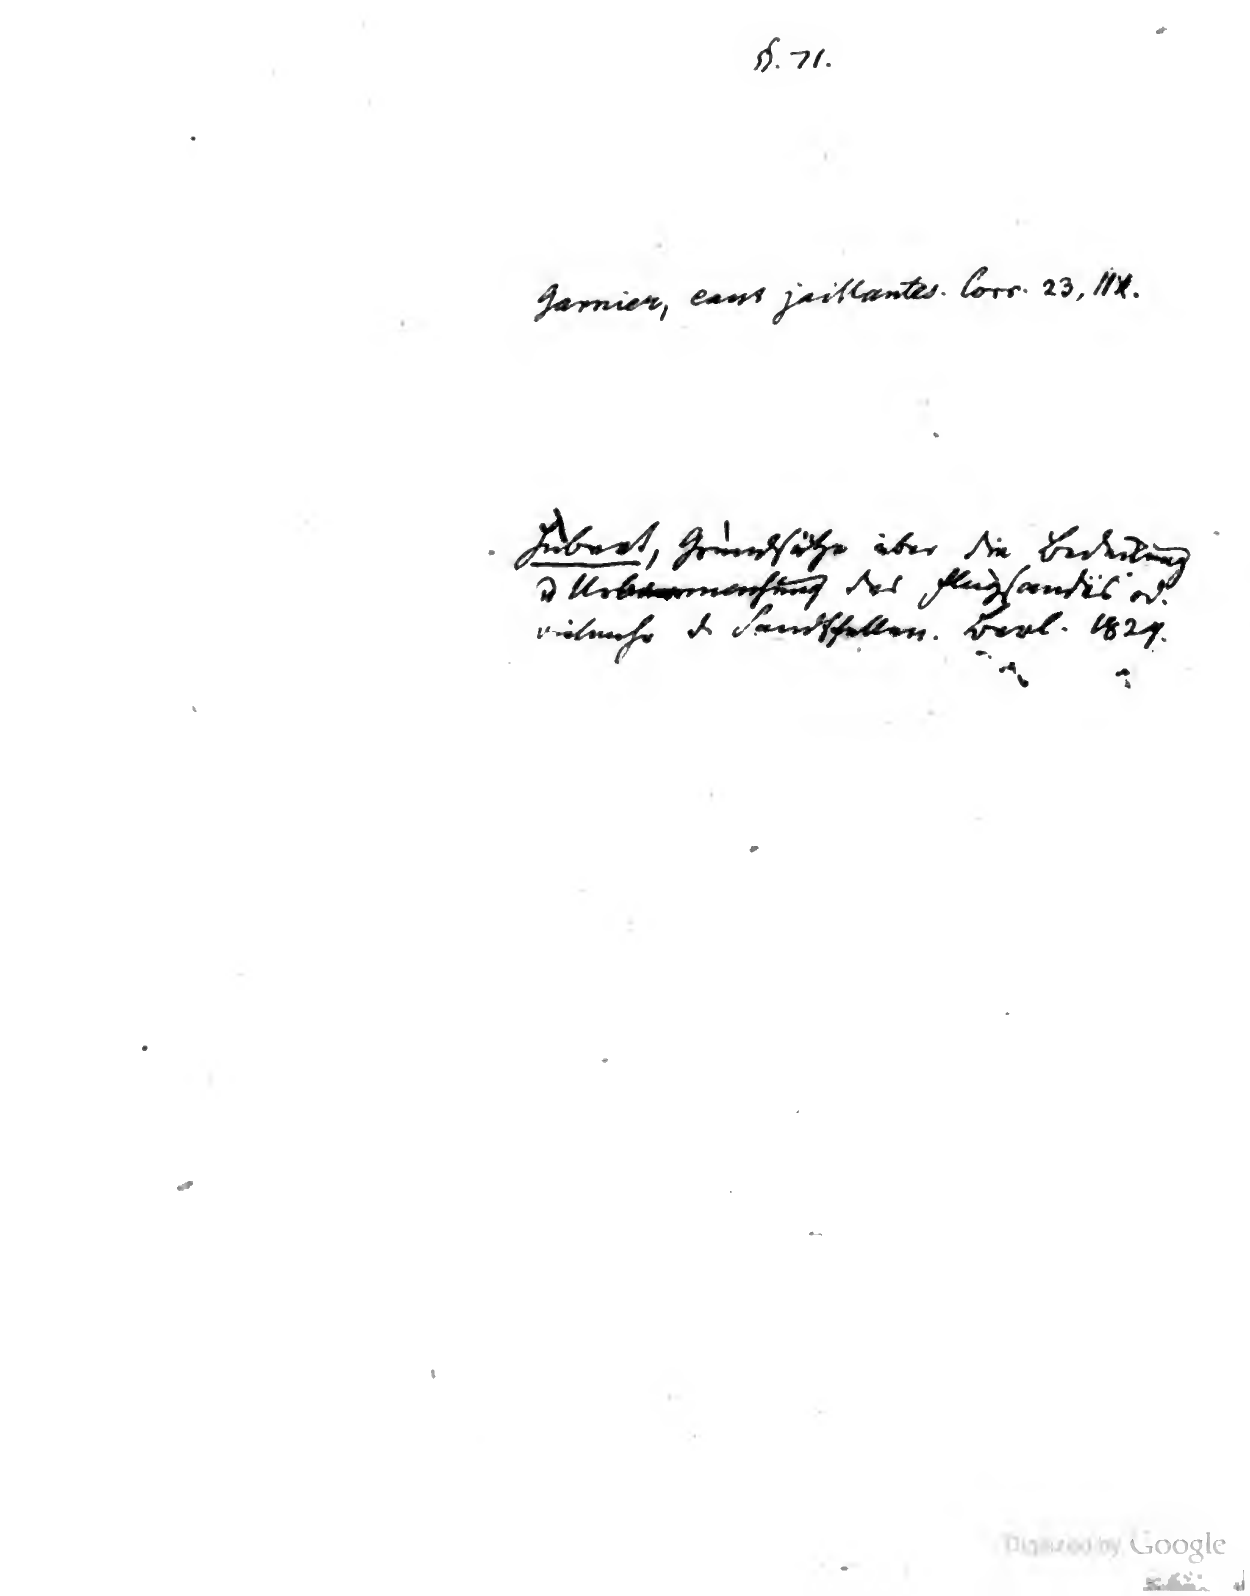 §. 71.
Garnier, eaux jaillantes. Corr. 23, 112.
Hubert, Grundsätze über die Bedeckung
u Urbarmachung des Flugsandes od.
vielmehr d. Sandschollen. Berl. 1824.
Digitized by Google